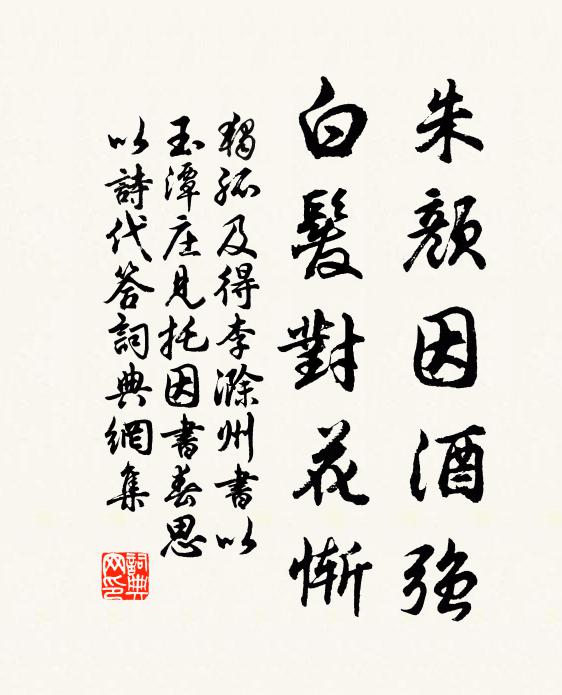 朱顏因酒强
白髮對花慚
獨孤及得李滁州書以
玉潭庄見托因書春思
以詩代答詞典網集
詞典网印